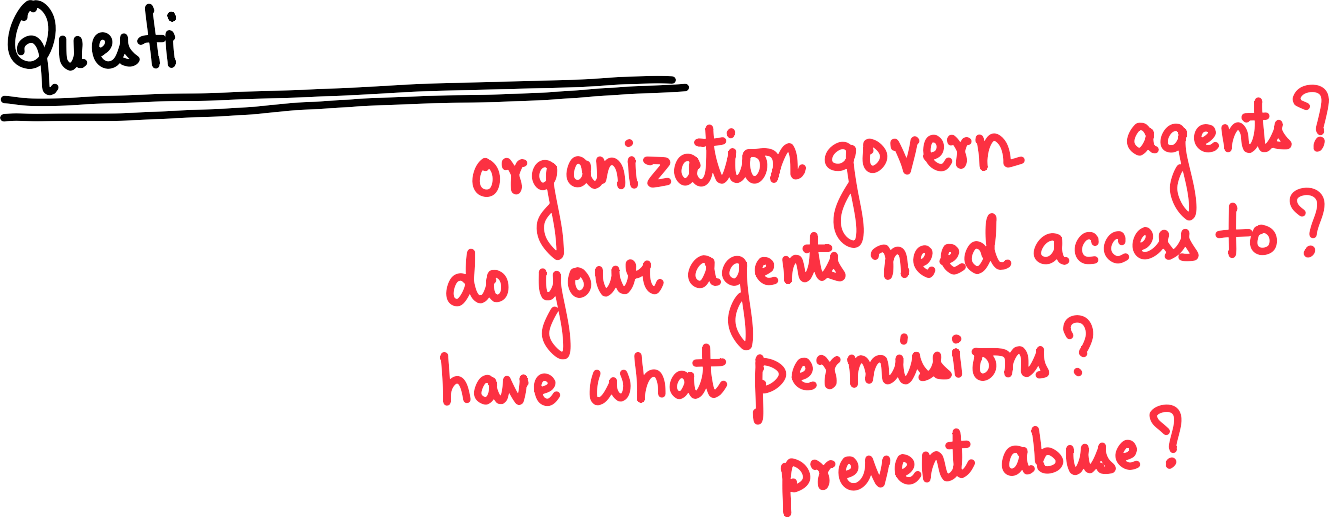 Questi
organization govern agents?
do your agents need access to?
have what permissions?
prevent abuse?